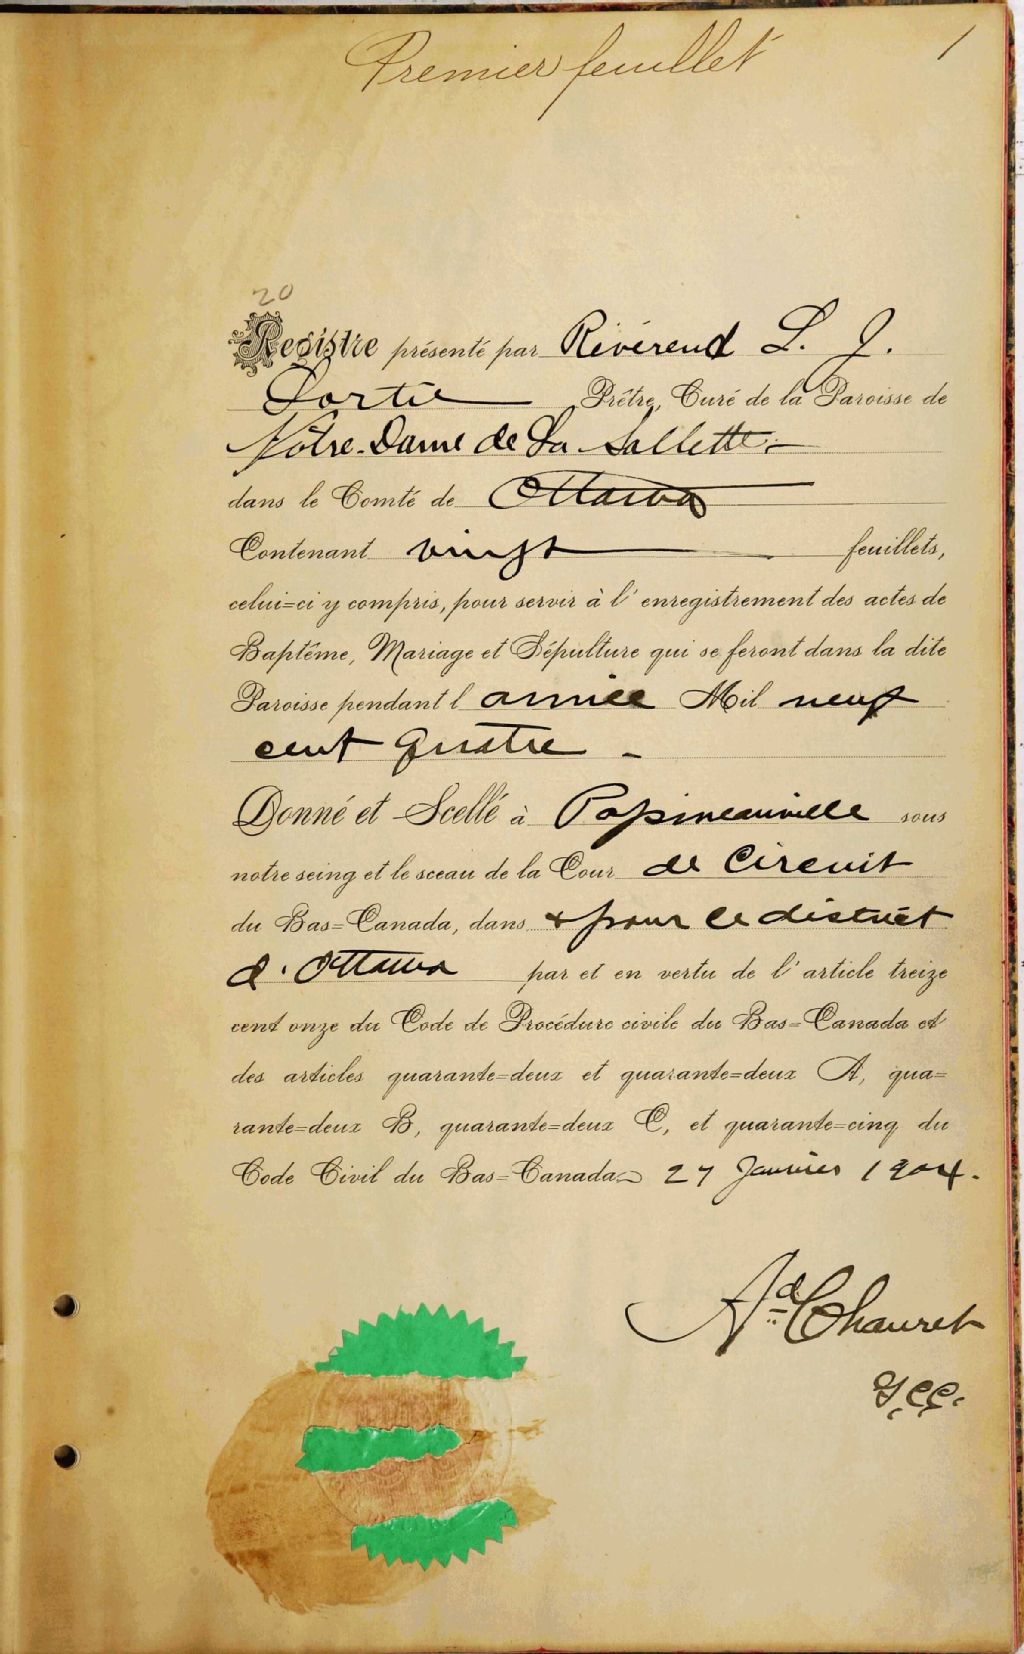 Premier feuillet 1
20
Registre présenté par Révérend L. J.
Lortie Prêtre, Curé de la Paroisse de
Nôtre-Dame de La Sallette.-
dans le Comté de Ottawa
Contenant vingt feuillets,
celui=ci y compris, pour servir à l'enregistrement des actes de
Baptême, Mariage et Sépulture qui se feront dans la dite
Paroisse pendant l année Mil neuf
cent quatre -
Donné et Scellé à Papineauville sous
notre seing et le sceau de la Cour de Circuit
du Bas=Canada, dans & pour le district
d. Ottawa par et en vertu de l'article treize
cent onze du Code de Procédure civile du Bas=Canada et
des articles quarante=deux et quarante=deux A, qua=
rante=deux B, quarante=deux C, et quarante=cinq du
Code Civil du Bas=Canada 27 Janvier 1904.
Ad Chauret
G.C.C.